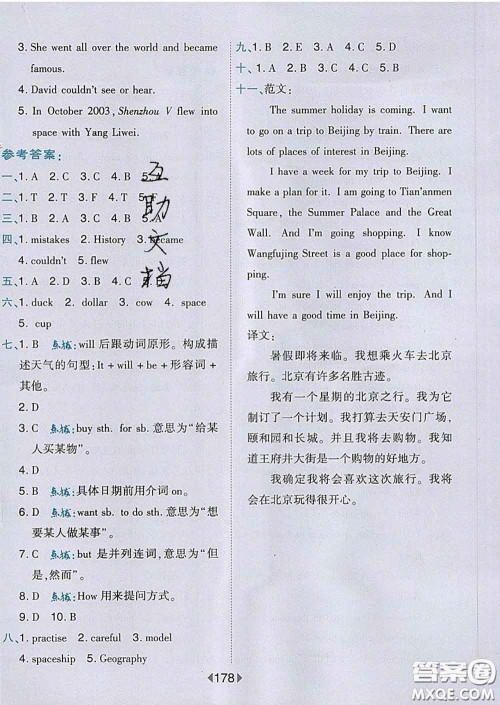 3. She went all over the world and became
famous.
4. David couldn't see or hear.
5. In October 2003, Shenzhou V flew into
space with Yang Liwei.
参考答案:
一、1. A 2. C 3. C 4. B 5.
二、1. T 2. T 3. F 4. T 5. F
三、1. B 2. C 3. C 4. B 5. A
四、1. mistakes 2. History 3. became
4. couldn't 5. flew
五、1. A 2. C 3. B 4. D 5.
六、1. duck 2. dollar 3. cow 4. space
5. cup
七、1. B 点拨:will 后跟动词原形。构成描
述天气的句型:It + will + be + 形容词 +
其他。
2. D
3. C 点拨:buy sth. for sb. 意思为“给某
人买某物”。
4. D
5. B 点拨:具体日期前用介词 on。
6. D 点拨:want sb. to do sth. 意思为“想
要某人做某事”。
7. C 点拨:but 是并列连词,意思为“但
是,然而”。
8. D 点拨:How 用来提问方式。
9. D 10. B
八、1. practise 2. careful 3. model
4. spaceship 5. Geography
互助文档
九、1. B 2. E 3. A 4. C 5. D
十、1. A 2. D 3. B 4. C 5. B
十一、范文:
The summer holiday is coming. I want
to go on a trip to Beijing by train. There are
lots of places of interest in Beijing.
I have a week for my trip to Beijing. I
make a plan for it. I am going to Tian'anmen
Square, the Summer Palace and the Great
Wall. And I'm going shopping. I know
Wangfujing Street is a good place for shop-
ping.
I'm sure I will enjoy the trip. And I will
have a good time in Beijing.
译文:
暑假即将来临。我想乘火车去北京
旅行。北京有许多名胜古迹。
我有一个星期的北京之行。我为它
制订了一个计划。我打算去天安门广场,
颐和园和长城。并且我将去购物。我知
道王府井大街是一个购物的好地方。
我确定我将会喜欢这次旅行。我将
会在北京玩得很开心。
178
答案圈
MXQE.COM